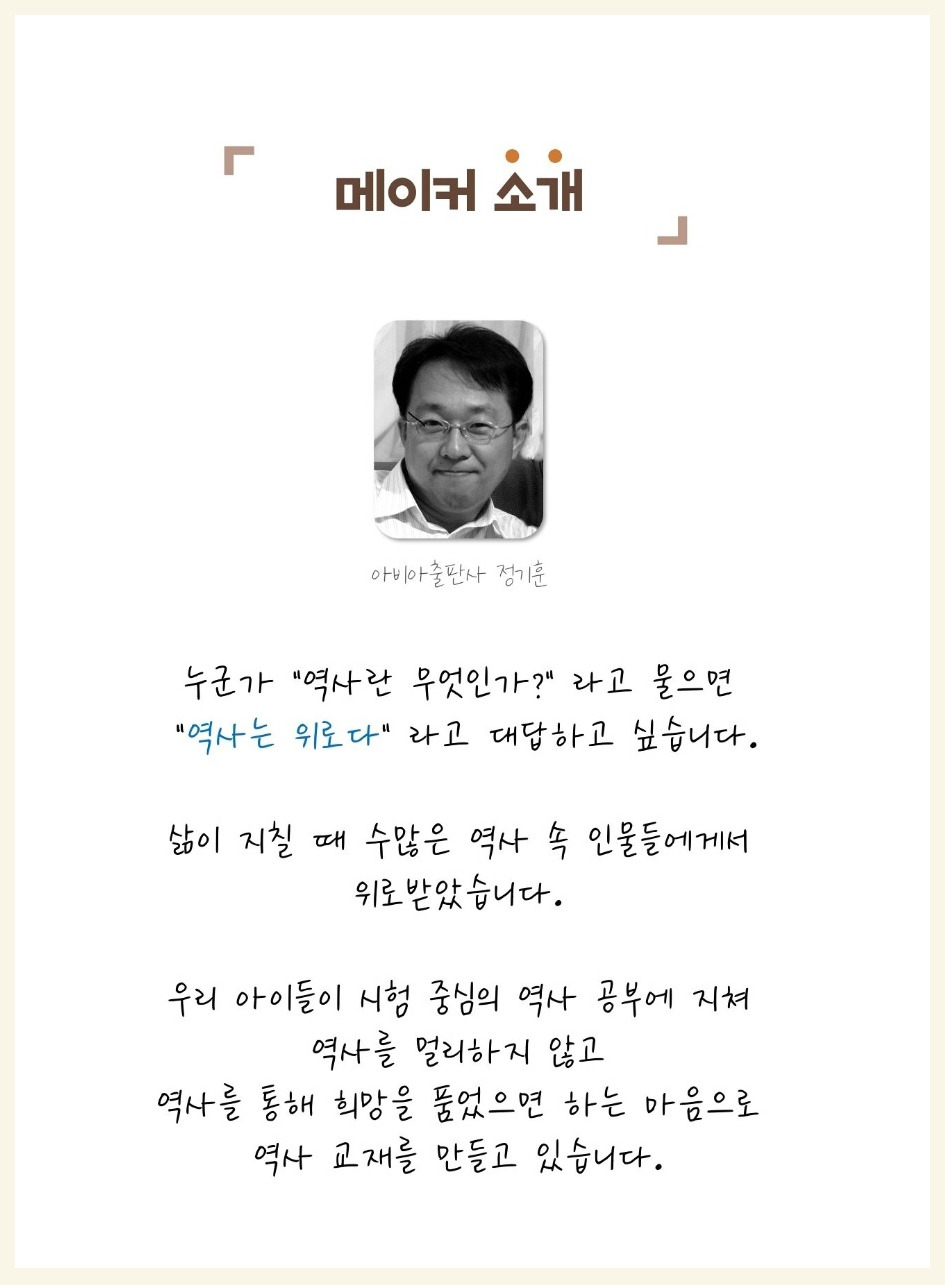 메이커 소개
아비아출판사 정기훈
누군가 "역사란 무엇인가?" 라고 물으면
"역사는 위로다" 라고 대답하고 싶습니다.
삶이 지칠 때 수많은 역사 속 인물들에게서
위로받았습니다.
우리 아이들이 시험 중심의 역사 공부에 지쳐
역사를 멀리하지 않고
역사를 통해 희망을 품었으면 하는 마음으로
역사 교재를 만들고 있습니다.